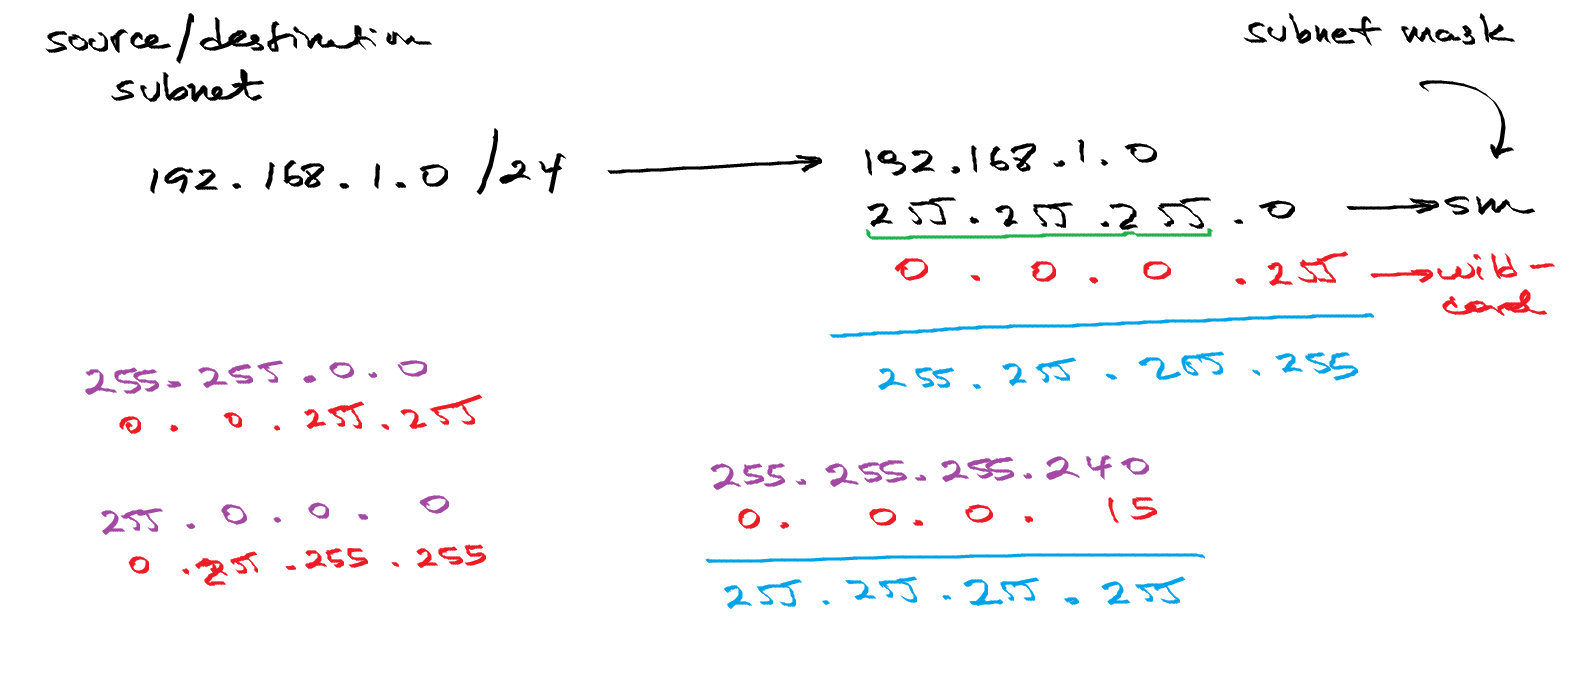 source/destination
subnet
subnet mask
192.168.1.0 /24
192.168.1.0
255.255.255.0 → sm
0.0.0.255 → wild-
card
255.255.255.255
255.255.0.0
0.0.255.255
255.0.0.0
0.255.255.255
255.255.255.240
0.0.0.15
255.255.255.255